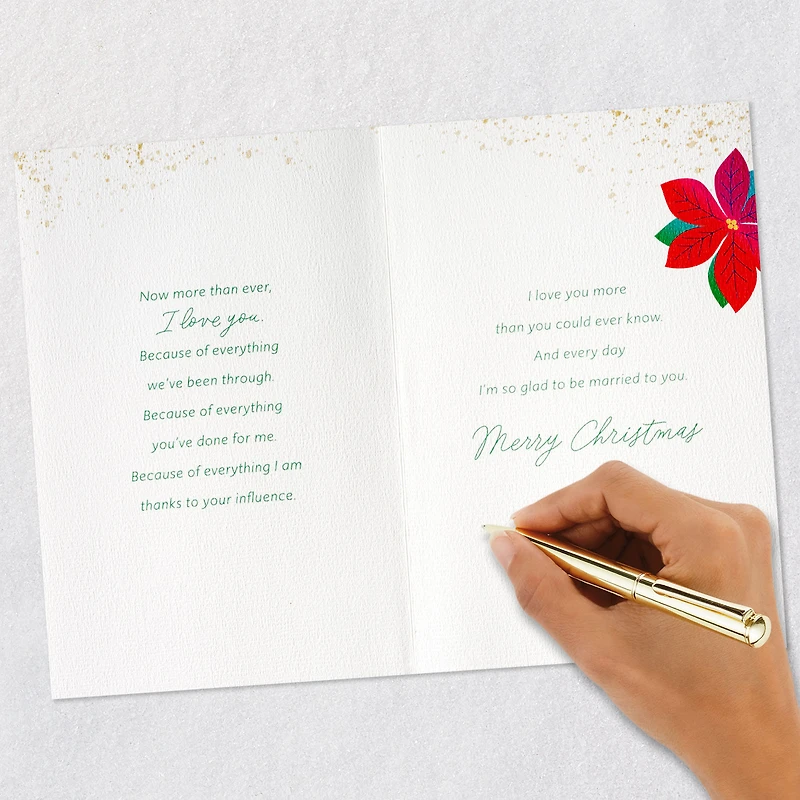 Now more than ever,
I love you.
Because of everything
we've been through.
Because of everything
you've done for me.
Because of everything I am
thanks to your influence.
I love you more
than you could ever know.
And every day
I'm so glad to be married to you.
Merry Christmas